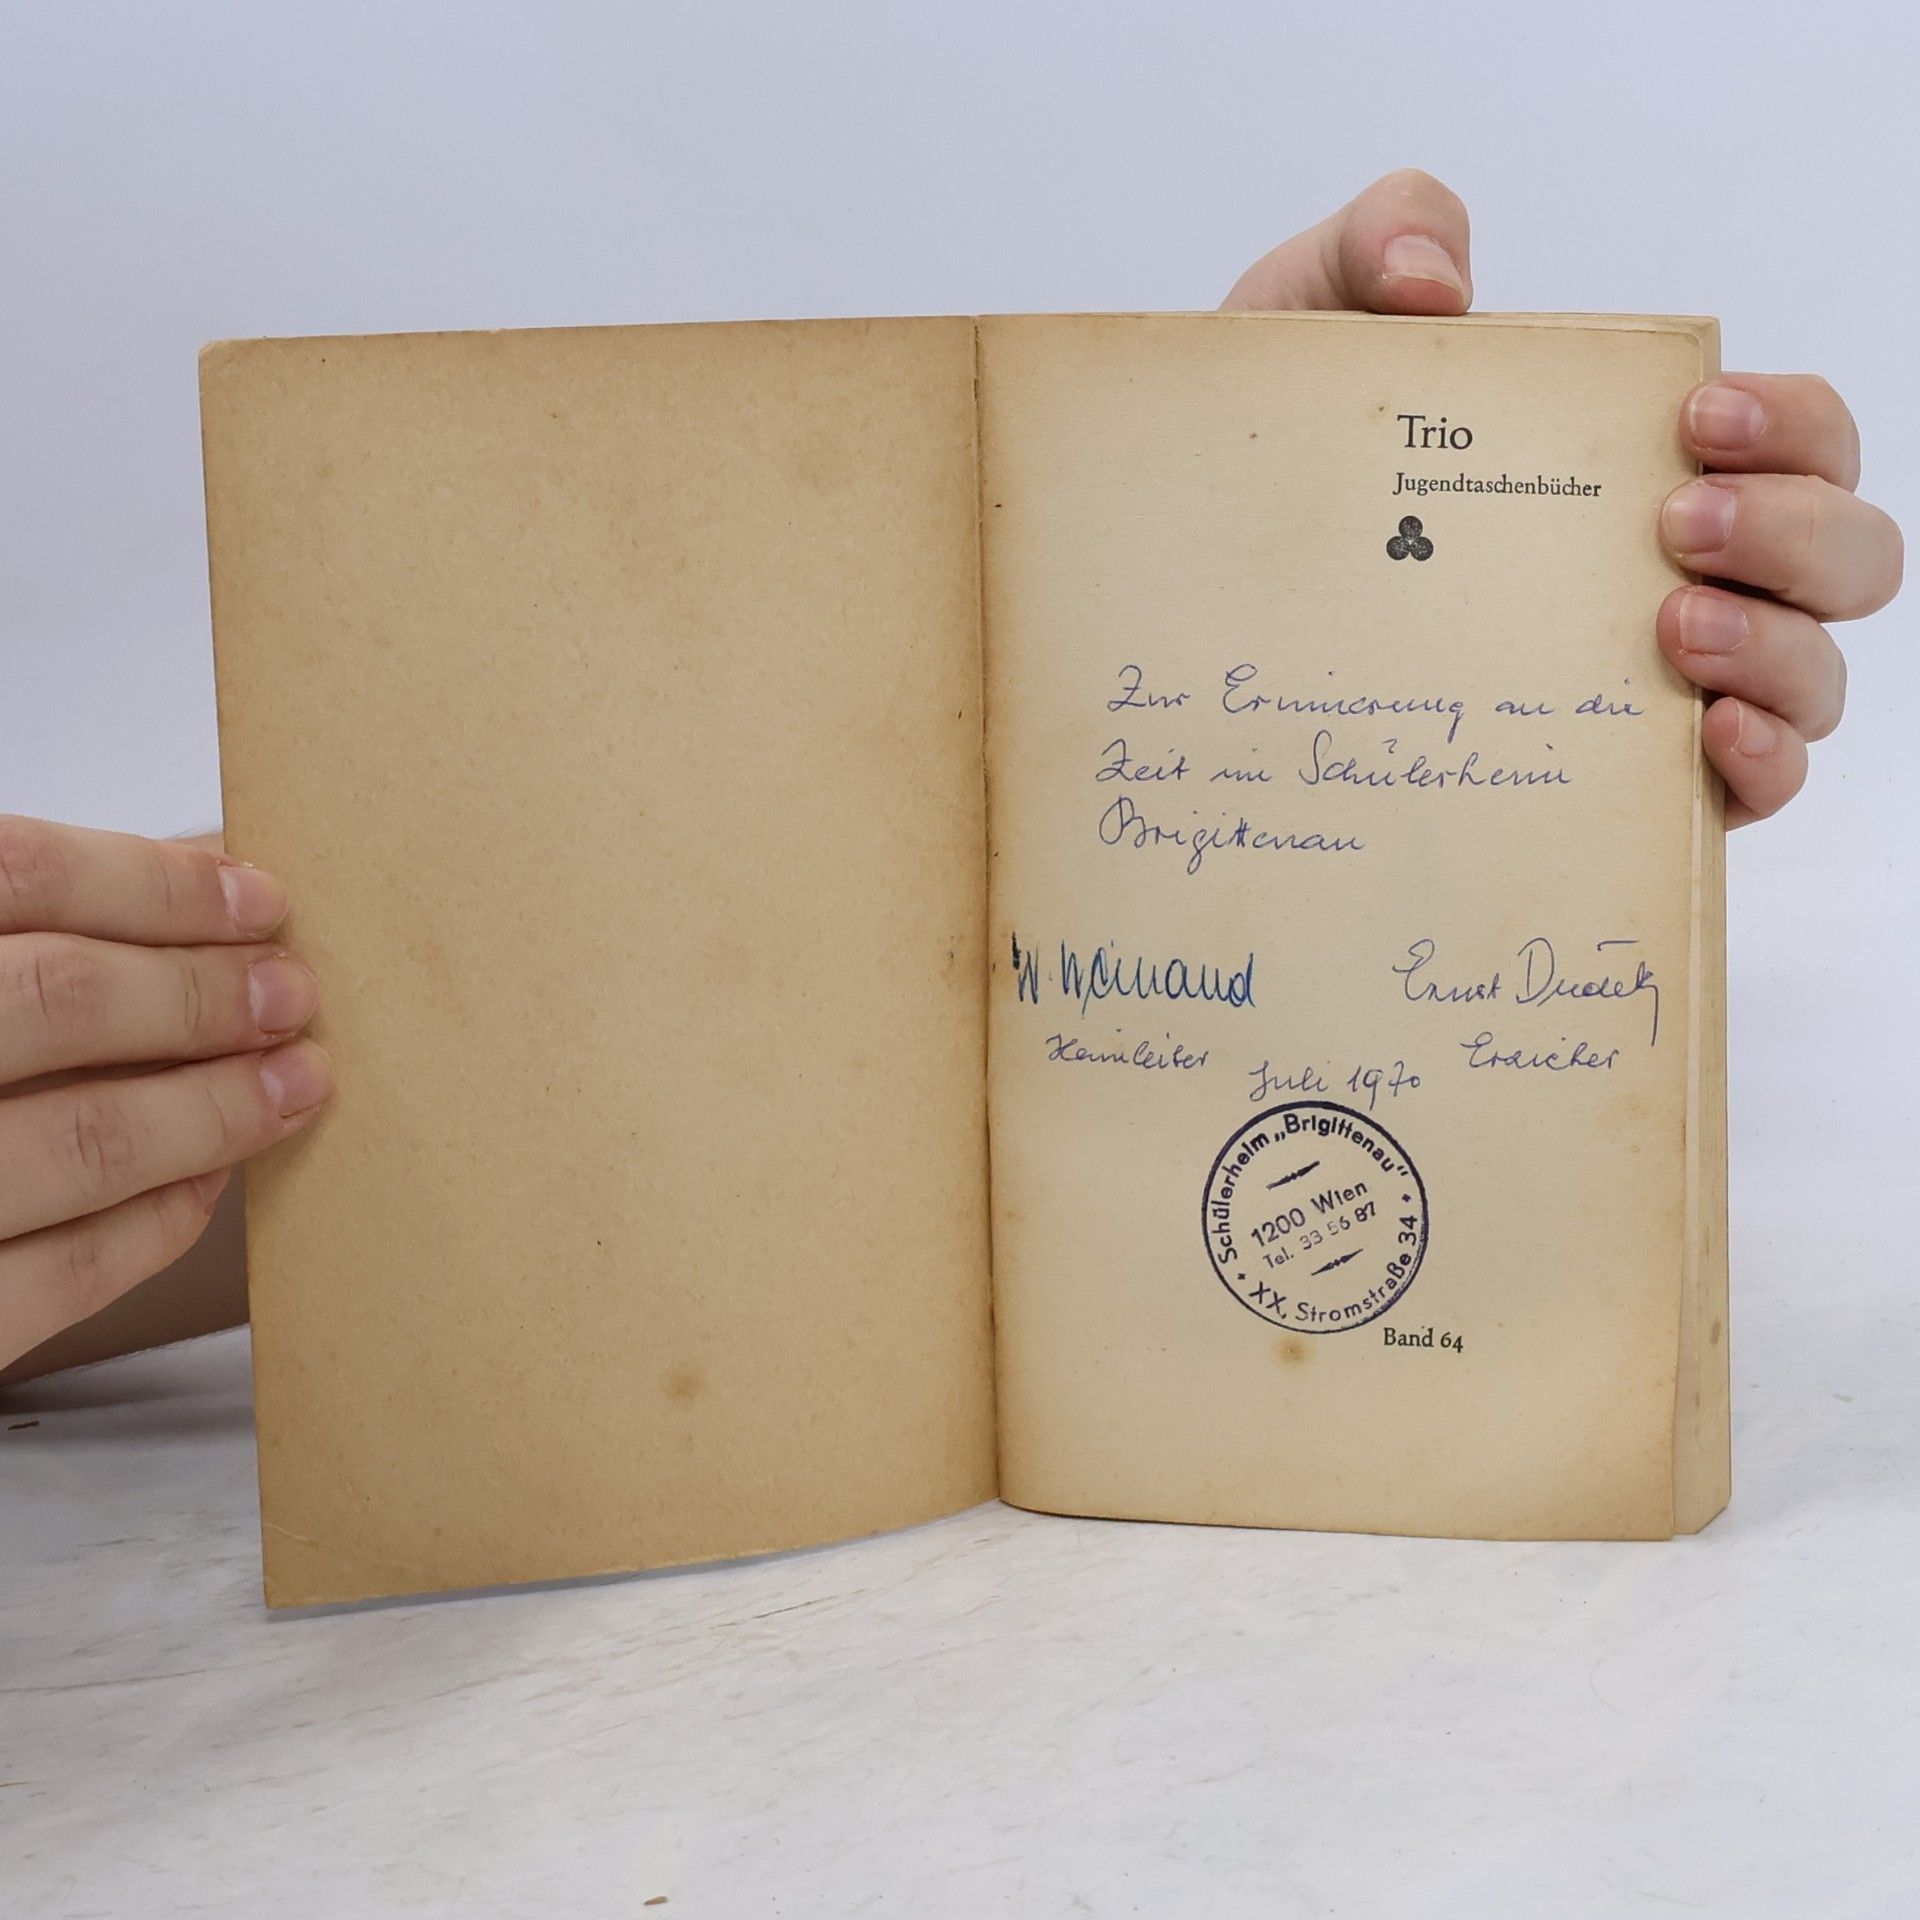 Trio
Jugendtaschenbücher
Zur Erinnerung an die
Zeit im Schülerheim
Brigittenau
W. Weinand Ernst Dudek
Heimleiter Erzieher
Juli 1970
Schülerheim „Brigittenau“
1200 Wien
Tel. 33 56 87
XX, Stromstraße 34
Band 64